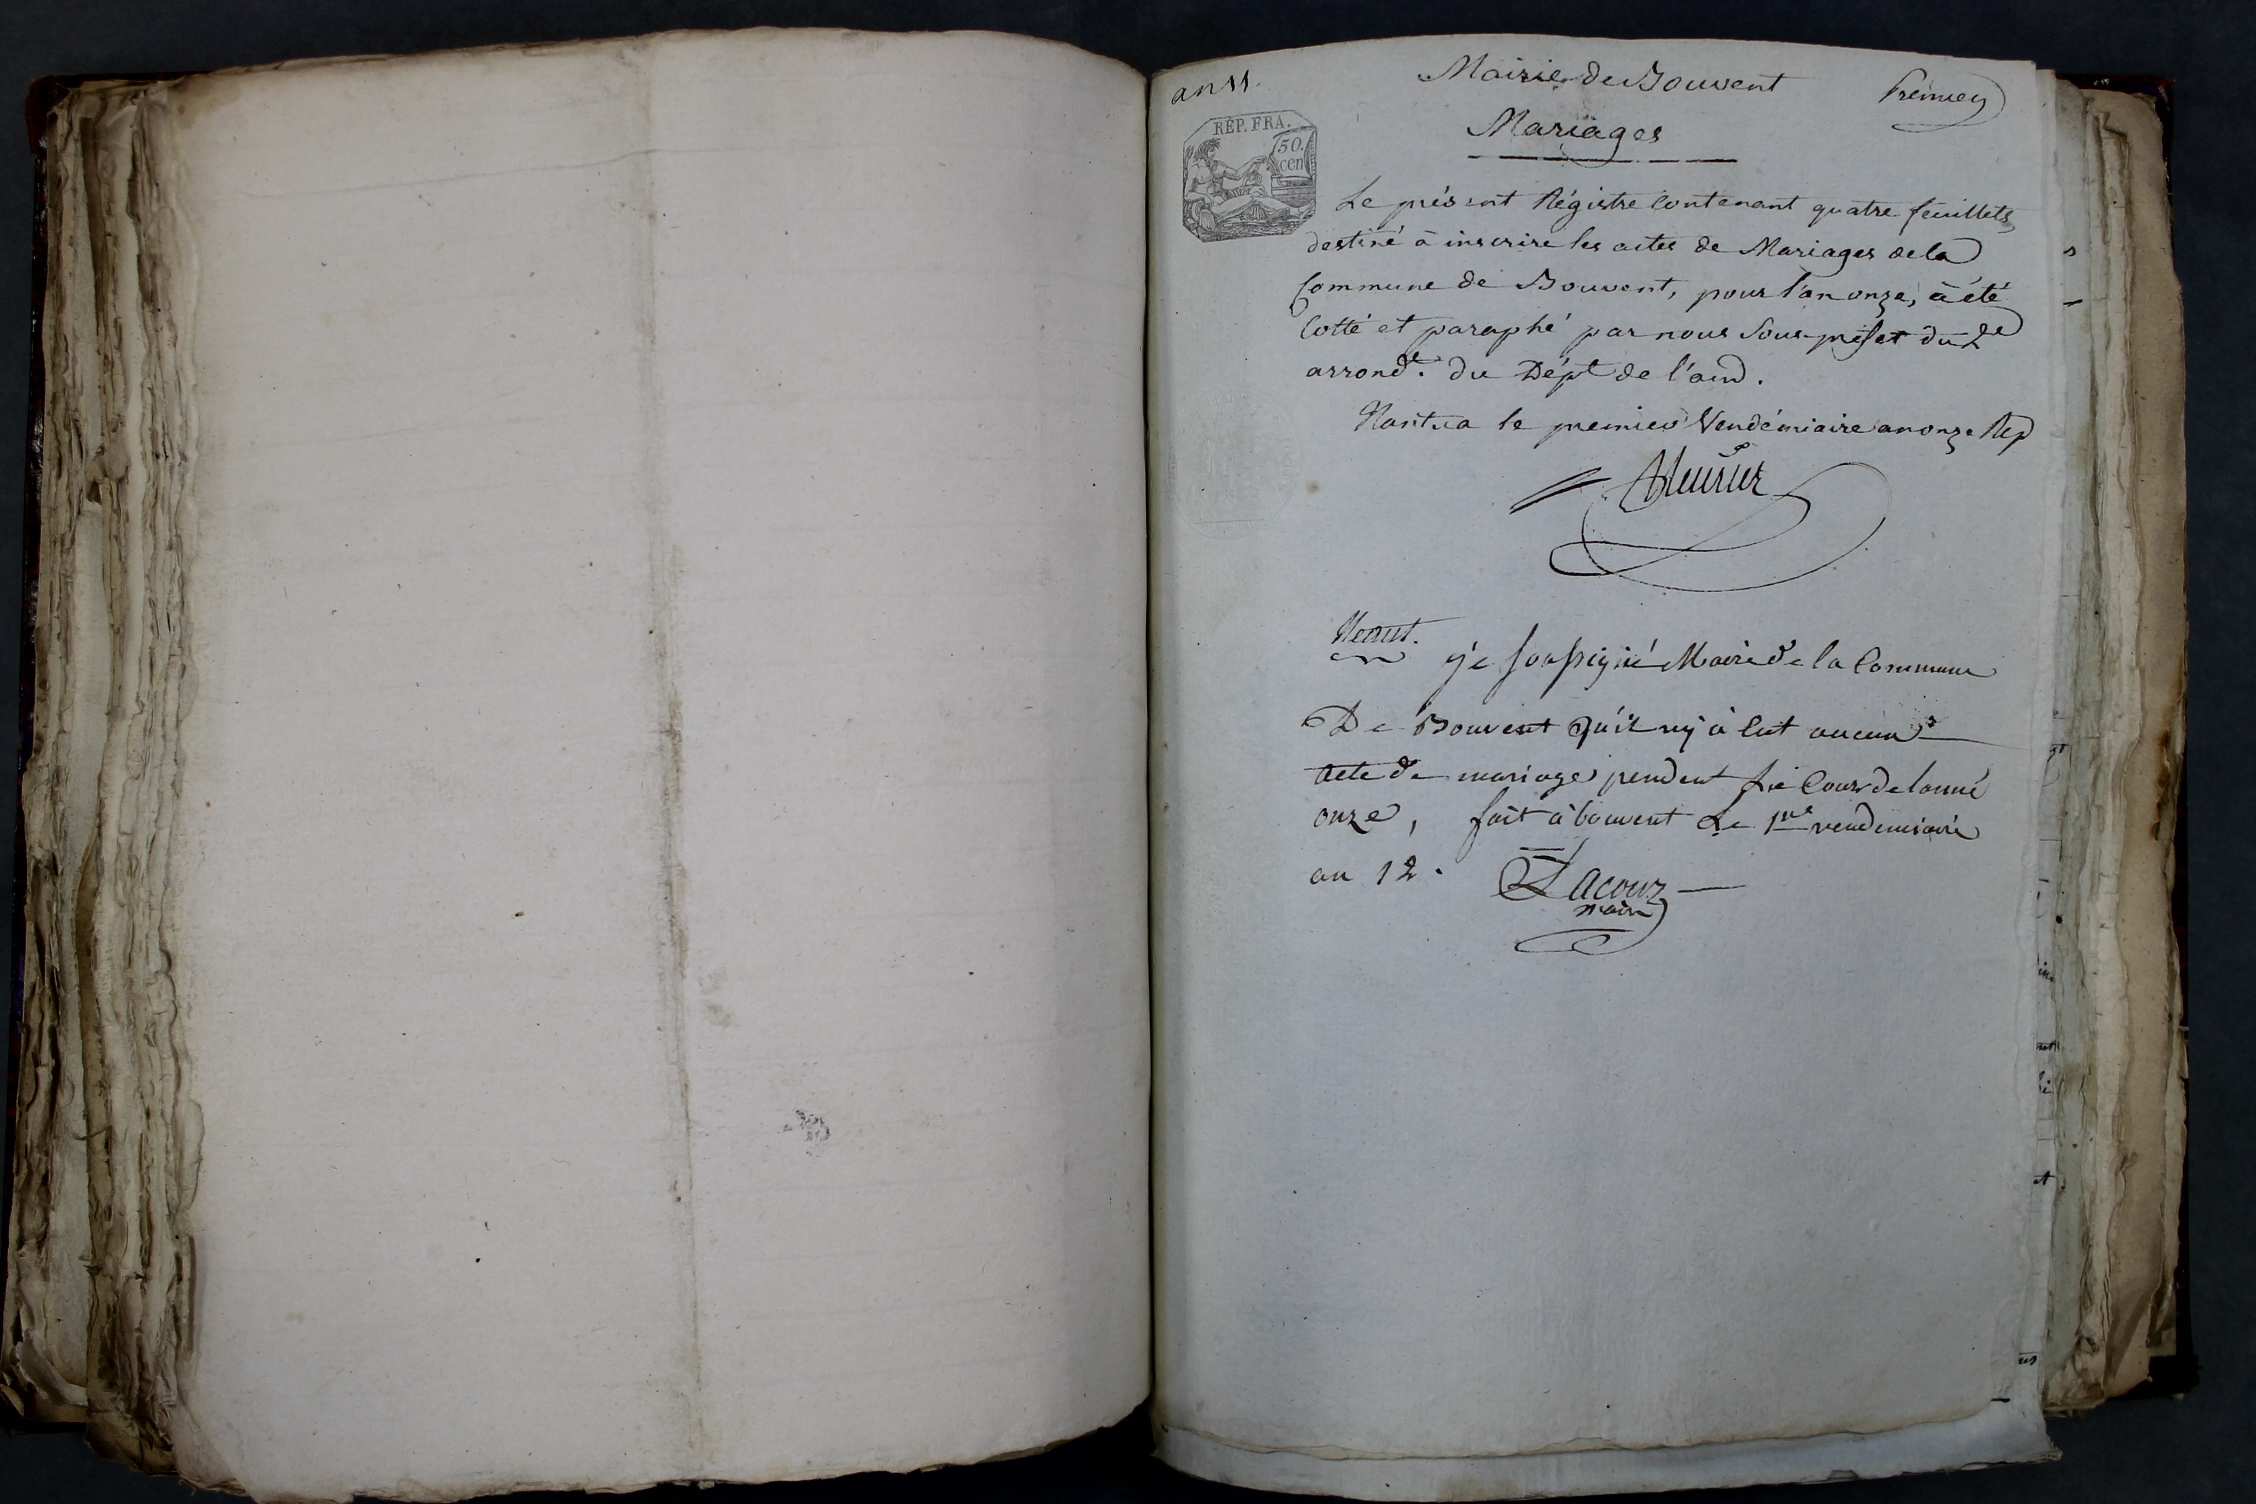 an 11.
Mairie de Bouvent
Premier
Mariages
REP. FRA.
50.
cen
Le présent Régistre Contenant quatre feuillets
destiné à inscrire les actes de Mariages de la
Commune de Bouvent, pour l'an onze, à été
Cotté et paraphé par nous Sous-préfet du 2e
arrondt. du Dépt de l'ain.
Nantua le premier Vendémiaire an onze Rep
je soussigné Maire de la Commune
De Bouvent qu'il ny à eut aucun
acte de mariage pendent Le Cour de lanné
onze, fait à bouvent Le 1er vendemiaire
an 12.
Lacour
maire